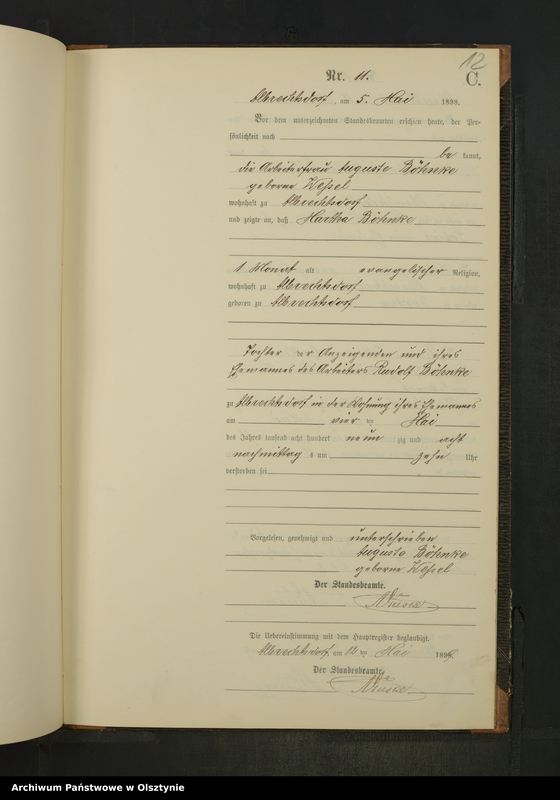 12
Nr. 11.
C.
Albrechtsdorf, am 5. Mai 1898.
Vor dem unterzeichneten Standesbeamten erschien heute, der Per-
sönlichkeit nach
be kannt,
die Arbeiterfrau Auguste Böhnke
geborne Wessel
wohnhaft zu Albrechtsdorf
und zeigte an, daß Martha Böhnke
1 Monat alt evangelischer Religion,
wohnhaft zu Albrechtsdorf
geboren zu Albrechtsdorf
Tochter der Anzeigenden und ihres
Ehemannes des Arbeiters Rudolf Böhnke
zu Albrechtsdorf in der Wohnung ihres Ehemannes
am vier ten Mai
des Jahres tausend acht hundert neun zig und acht
nachmittag s um zehn Uhr
verstorben sei
Vorgelesen, genehmigt und unterschrieben
Auguste Böhnke
geborne Wessel
Der Standesbeamte.
Die Uebereinstimmung mit dem Hauptregister beglaubigt.
Albrechtsdorf, am ten Mai
Der Standesbeamte.
Archiwum Państwowe w Olsztynie